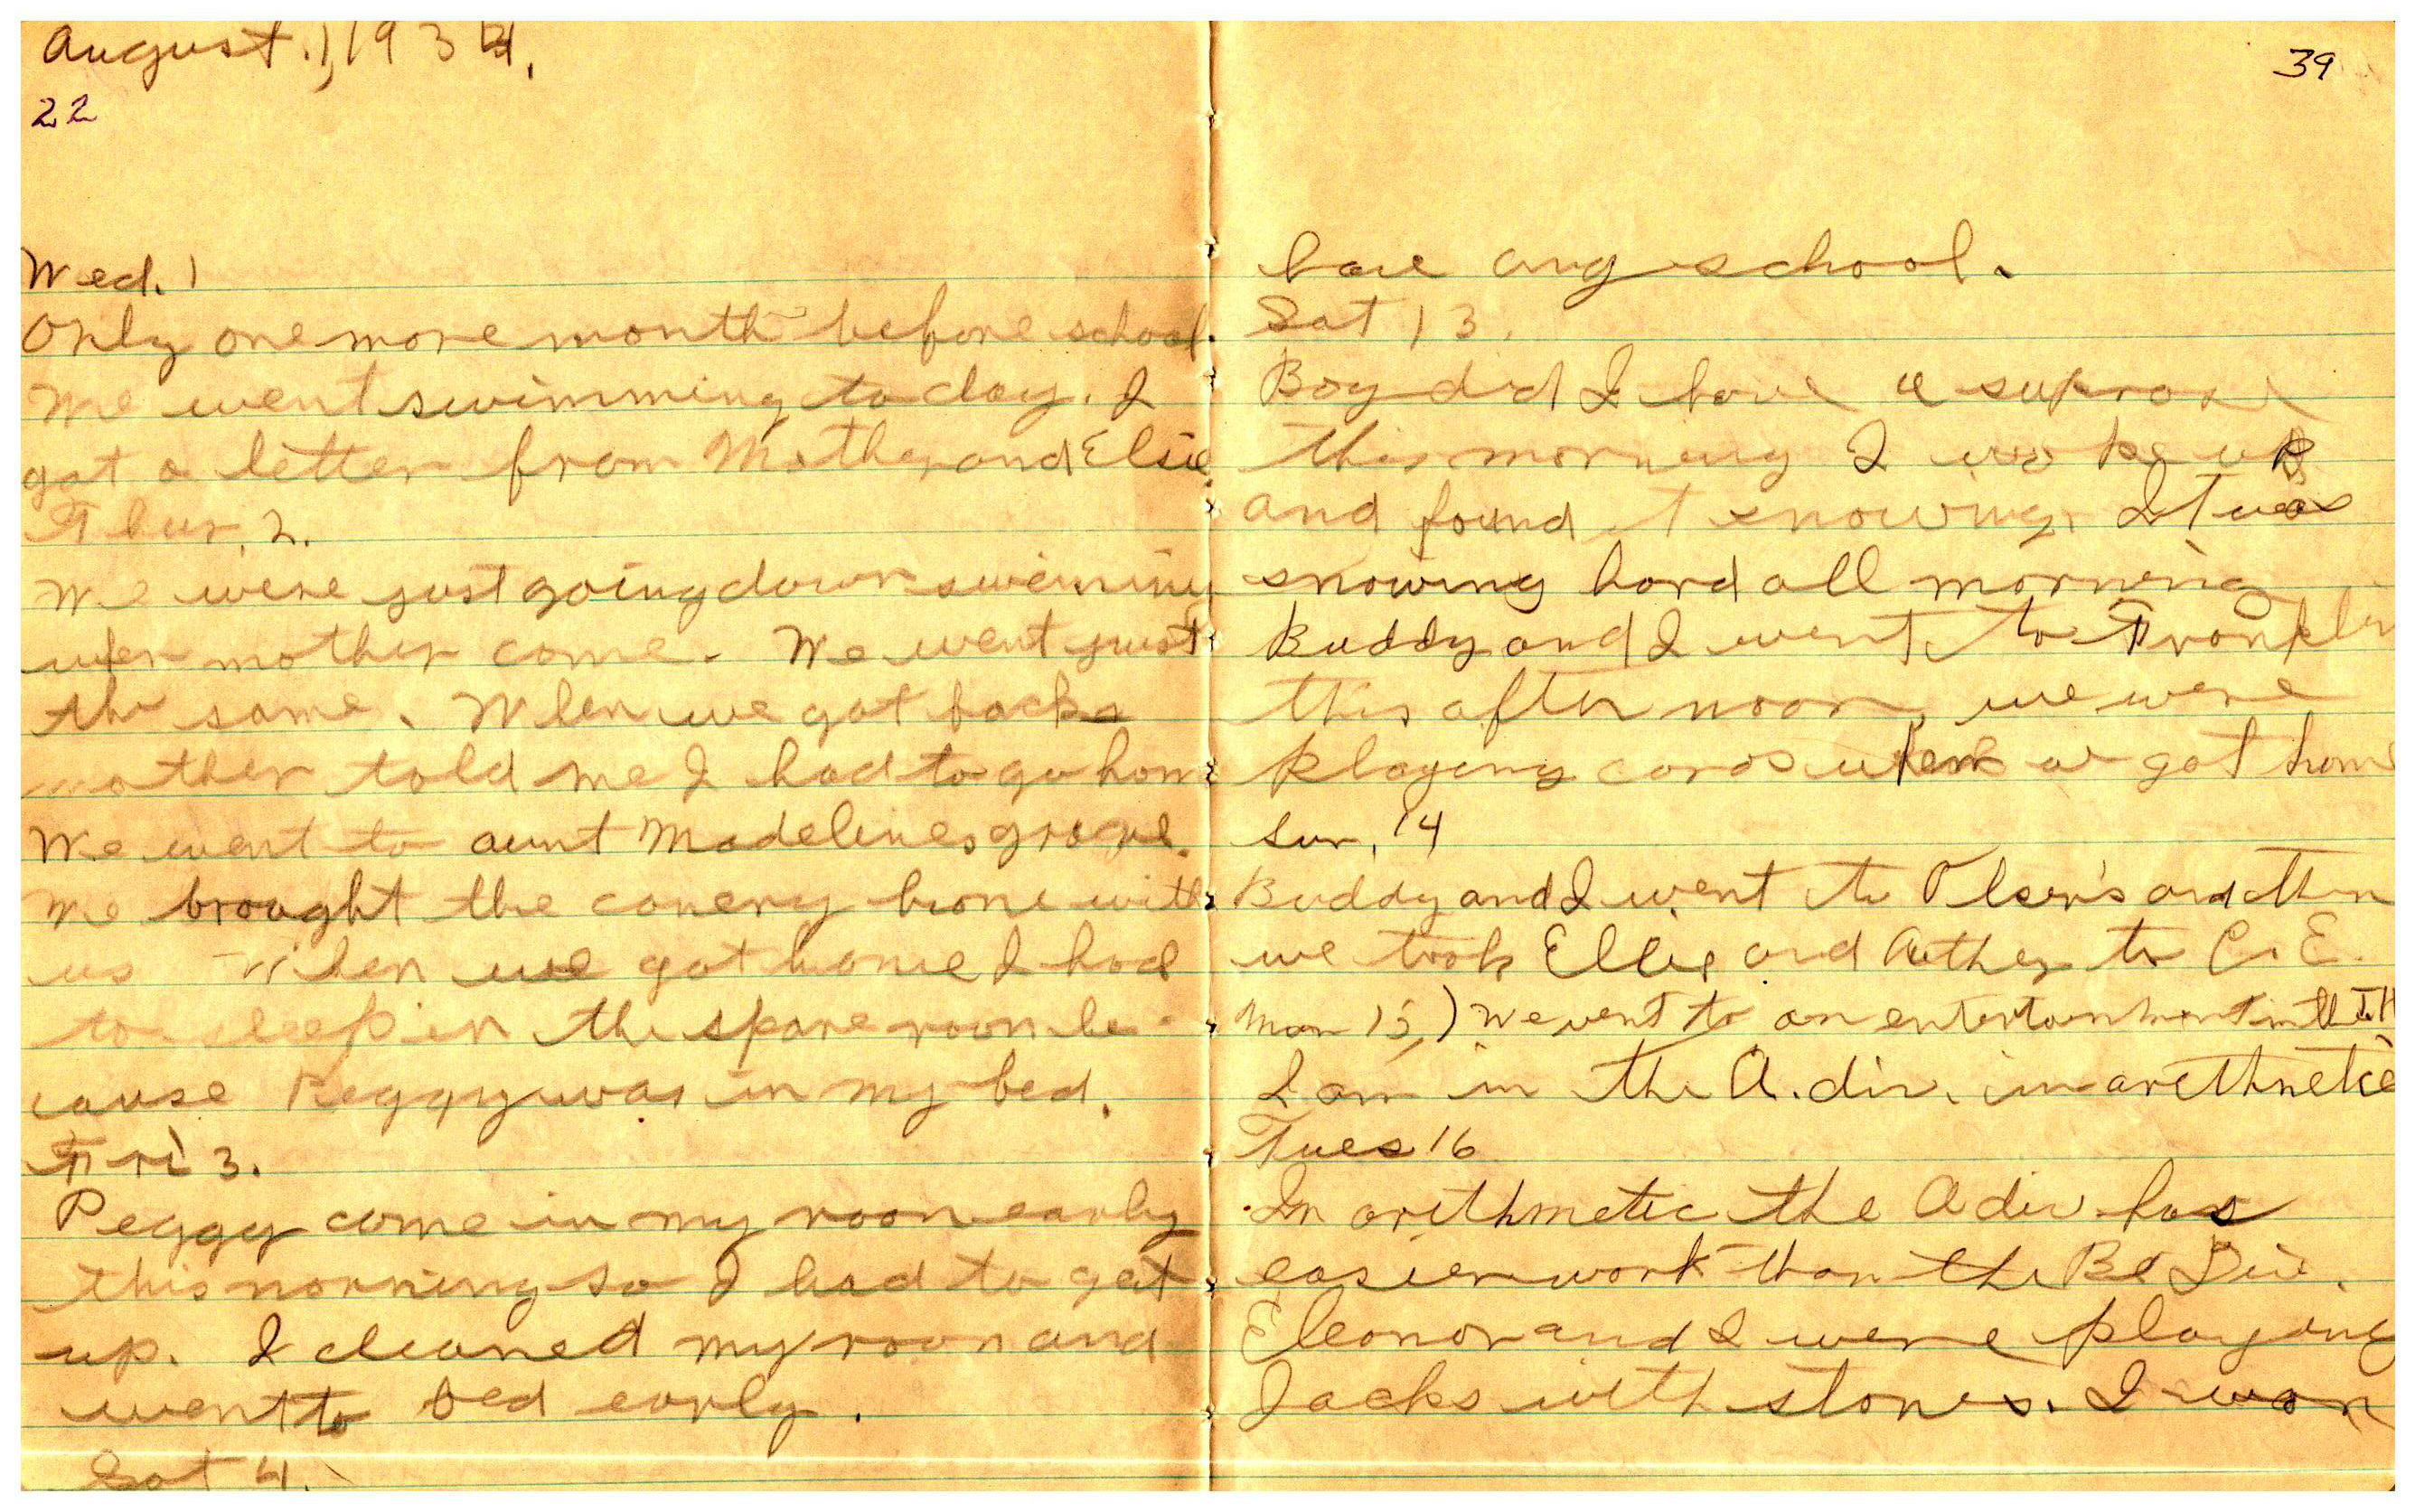 August 1, 1934.
22
Wed. 1
Only one more month before school.
We went swimming to day. I
got a letter from Mother and Elsie.
Thur. 2.
We were just going down swimming
when mother come. We went just
the same. When we got back
mother told me I had to go home
We went to aunt Madelines grove.
We brought the canery home with
us When we got home I had
to sleep in the spare room be-
cause Peggy was in my bed.
Fri 3.
Peggy come in my room early
this morning so I had to get
up. I cleaned my room and
went to bed early.
Sat 4.
39
have any school.
Sat 13.
Boy did I have a suprise
this morning I woke up
and found it snowing. It was
snowing hard all morning
Buddy and I went to Franklin
this after noon, we were
playing cards when we got home
Sun. 14
Buddy and I went to Olsen's and then
we took Ellie and Arther to C. E.
Mon 15,) We went to an entertainment in the T.H
I am in the A. div. in arithmetic
Tues 16
In arithmetic the A div has
easier work than the B Div.
Eleonor and I were playing
Jacks with stones. I won